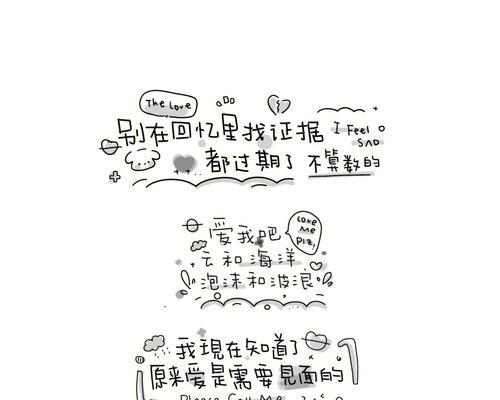 The Love
别在回忆里找证据
I Feel
SAD
都过期了 不算数的
爱我吧
Love
Me
Plz,
云和海洋
泡沫和波浪
我現在知道了
原来爱是需要見面的
Please Call Me